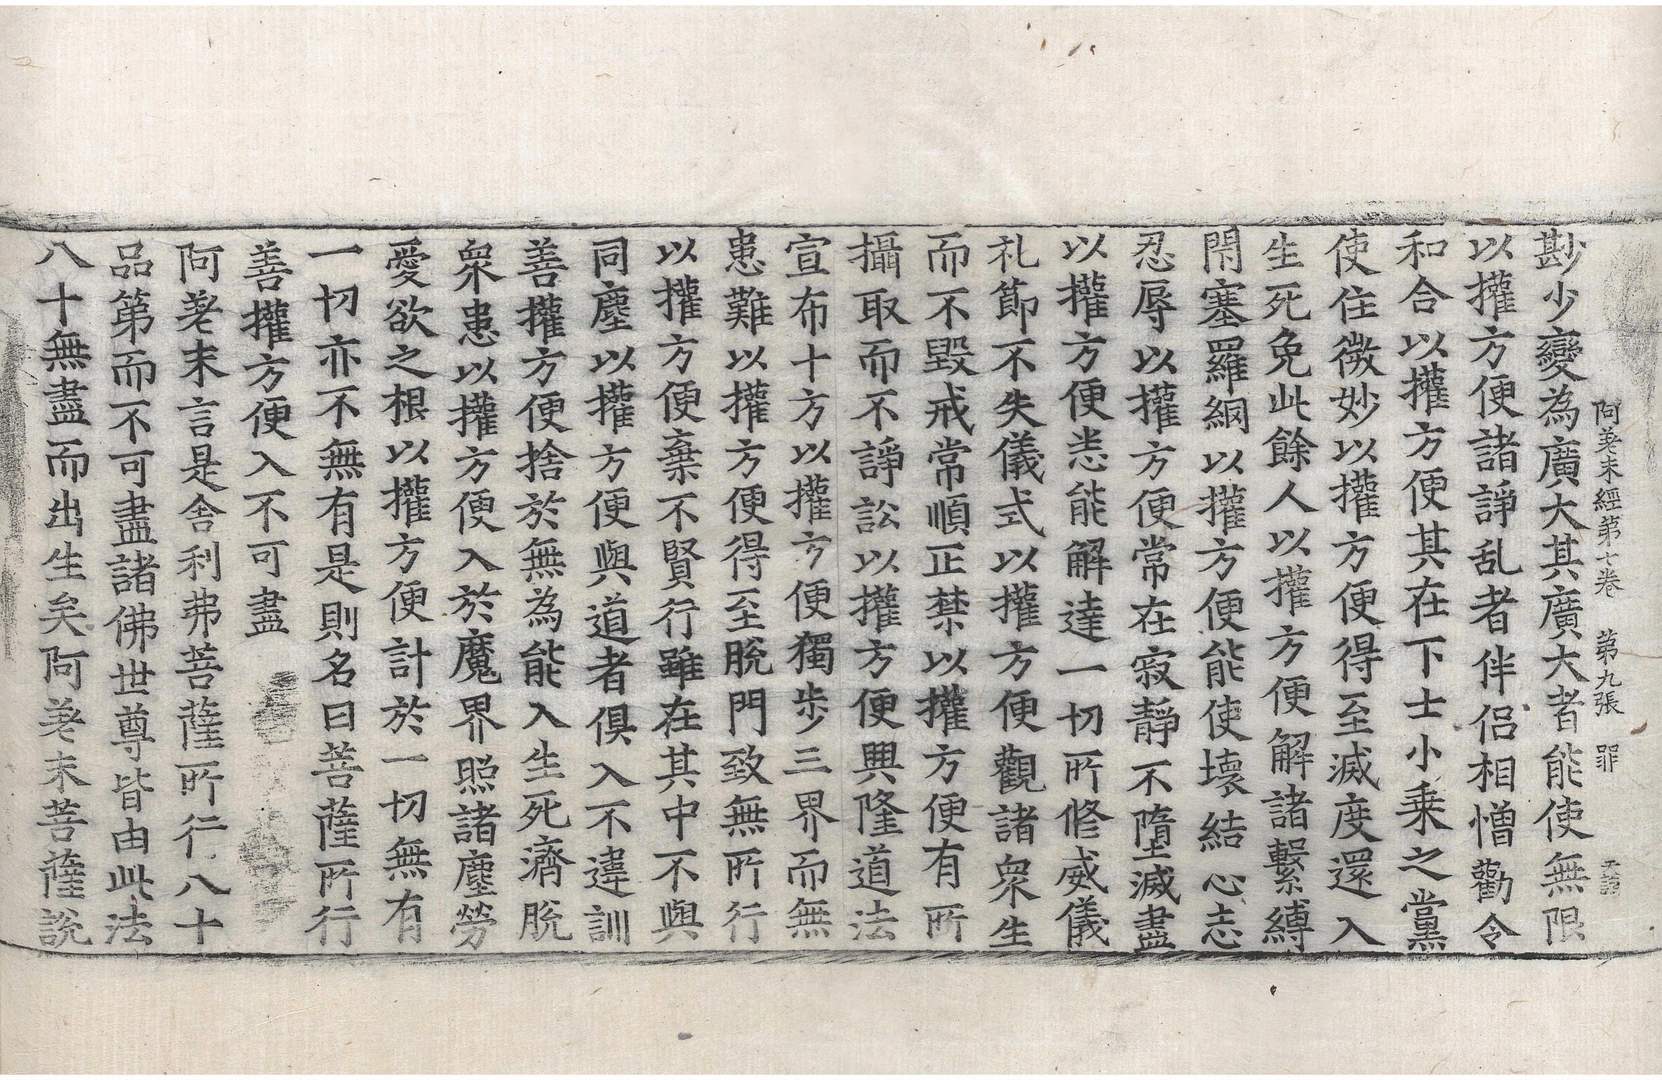 阿差末經第七卷 第九張 罪
尠少變為廣大其廣大者能使無限
以權方便諸諍乱者伴侶相憎勸令
和合以權方便其在下士小乗之黨
使住微妙以權方便得至滅度還入
生死免此餘人以權方便解諸繫縛
閇塞羅網以權方便能使壞結心志
忍辱以權方便常在寂靜不墮滅盡
以權方便悉能解達一切所修威儀
礼節不失儀式以權方便觀諸衆生
而不毀戒常順正禁以權方便有所
攝取而不諍訟以權方便興隆道法
宣布十方以權方便獨步三界而無
患難以權方便得至脫門致無所行
以權方便棄不賢行雖在其中不與
同塵以權方便與道者俱入不違訓
善權方便捨於無為能入生死濟脫
衆患以權方便入於魔界照諸塵勞
愛欲之根以權方便計於一切無有
一切亦不無有是則名曰菩薩所行
善權方便入不可盡
阿差末言是舍利弗菩薩所行八十
品第而不可盡諸佛世尊皆由此法
八十無盡而出生矣阿差末菩薩說